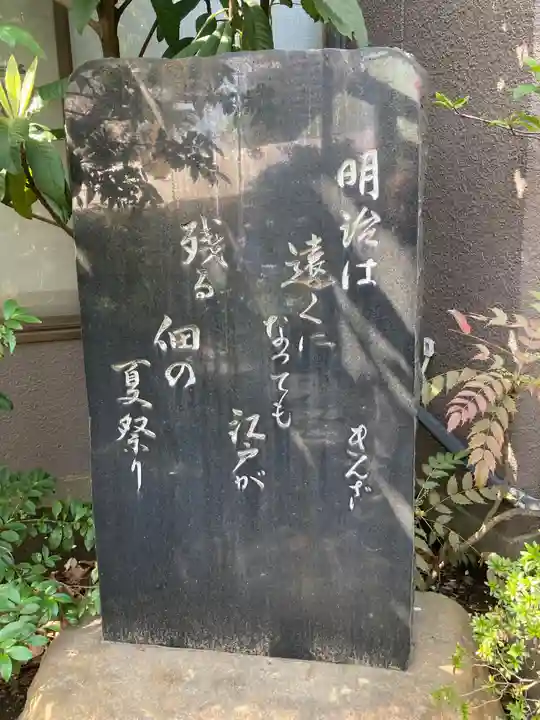 明治は
遠くに
なっても
江戸が
残る
佃の
夏祭り